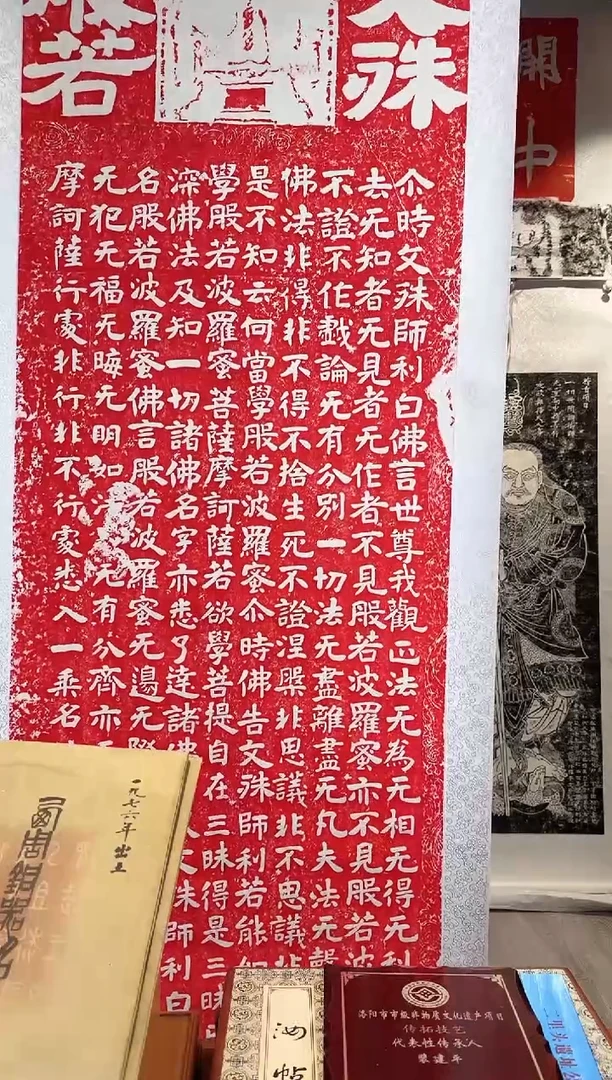 文殊
般若
尒時文殊師利白佛言世尊我觀正法无為无相无得无利
去无知者无見者无作者不見般若波羅蜜亦不見般若波
不證不作戲論无有分別一切法无盡離盡无凡夫法无聲
佛法非得非不得不捨生死不證涅槃非思議非不思議非
是不知云何當學般若波羅蜜尒時佛告文殊師利若能如
學般若波羅蜜菩薩摩訶薩若欲學菩提自在三昧得是三昧
深佛法及知一切諸佛名字亦悉了達諸佛 文殊師利白
名般若波羅蜜佛言般若波羅蜜无邊无際
无犯无福无晦无明如法 无有分齊亦无
摩訶薩行處非行非不行處悉入一乘名
開中
一九七六年出土
汝帖
洛阳市市级非物质文化遗产项目
传拓技艺
代表性传承人
裴建平